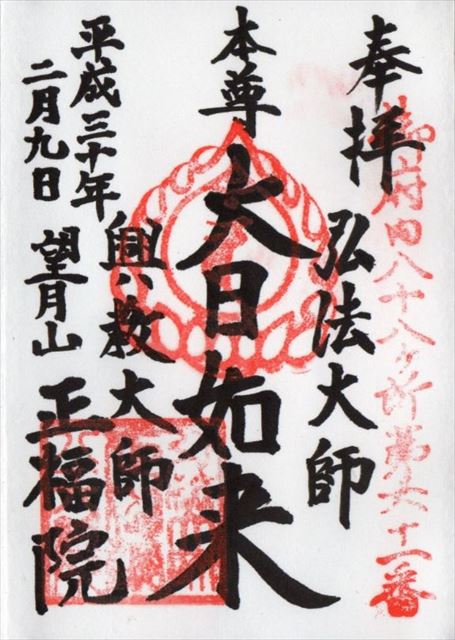 奉拝
御府内八十八ヶ所第六十一番
弘法大師
本尊 大日如来
興教大師
平成三十年
二月九日
望月山 正福院